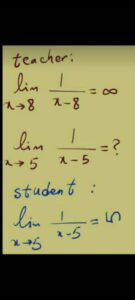 teacher:
lim x→8 1/(x-8) = ∞
lim x→5 1/(x-5) = ?
student :
lim x→5 1/(x-5) = 5